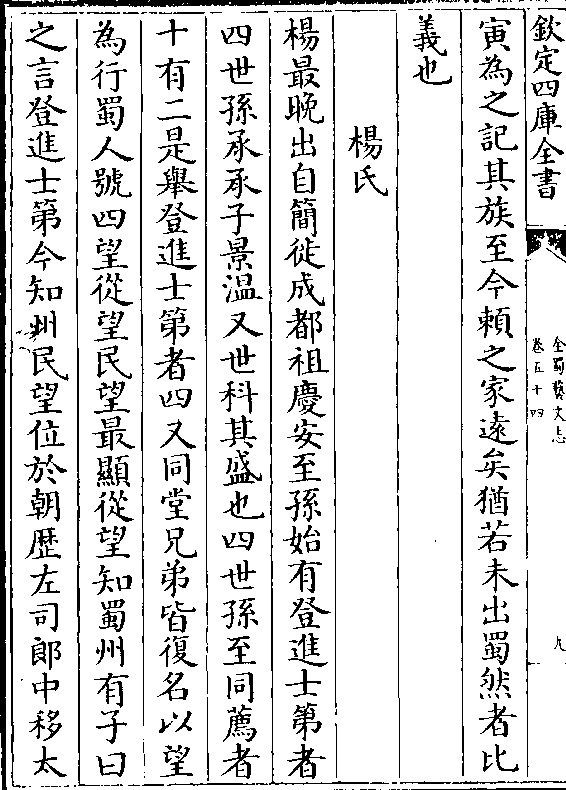 欽定四庫全書
全蜀藝文志
卷五十四
九
寅為之記其族至今頼之家逺矣猶若未出蜀然者比
義也
楊氏
楊最晚出自簡徙成都祖慶安至孫始有登進士第者
四世孫承承子景温又世科其盛也四世孫至同薦者
十有二是舉登進士第者四又同堂兄弟皆復名以望
為行蜀人號四望從望民望最顯從望知蜀州有子曰
之言登進士第今知州民望位於朝歴左司郎中移太